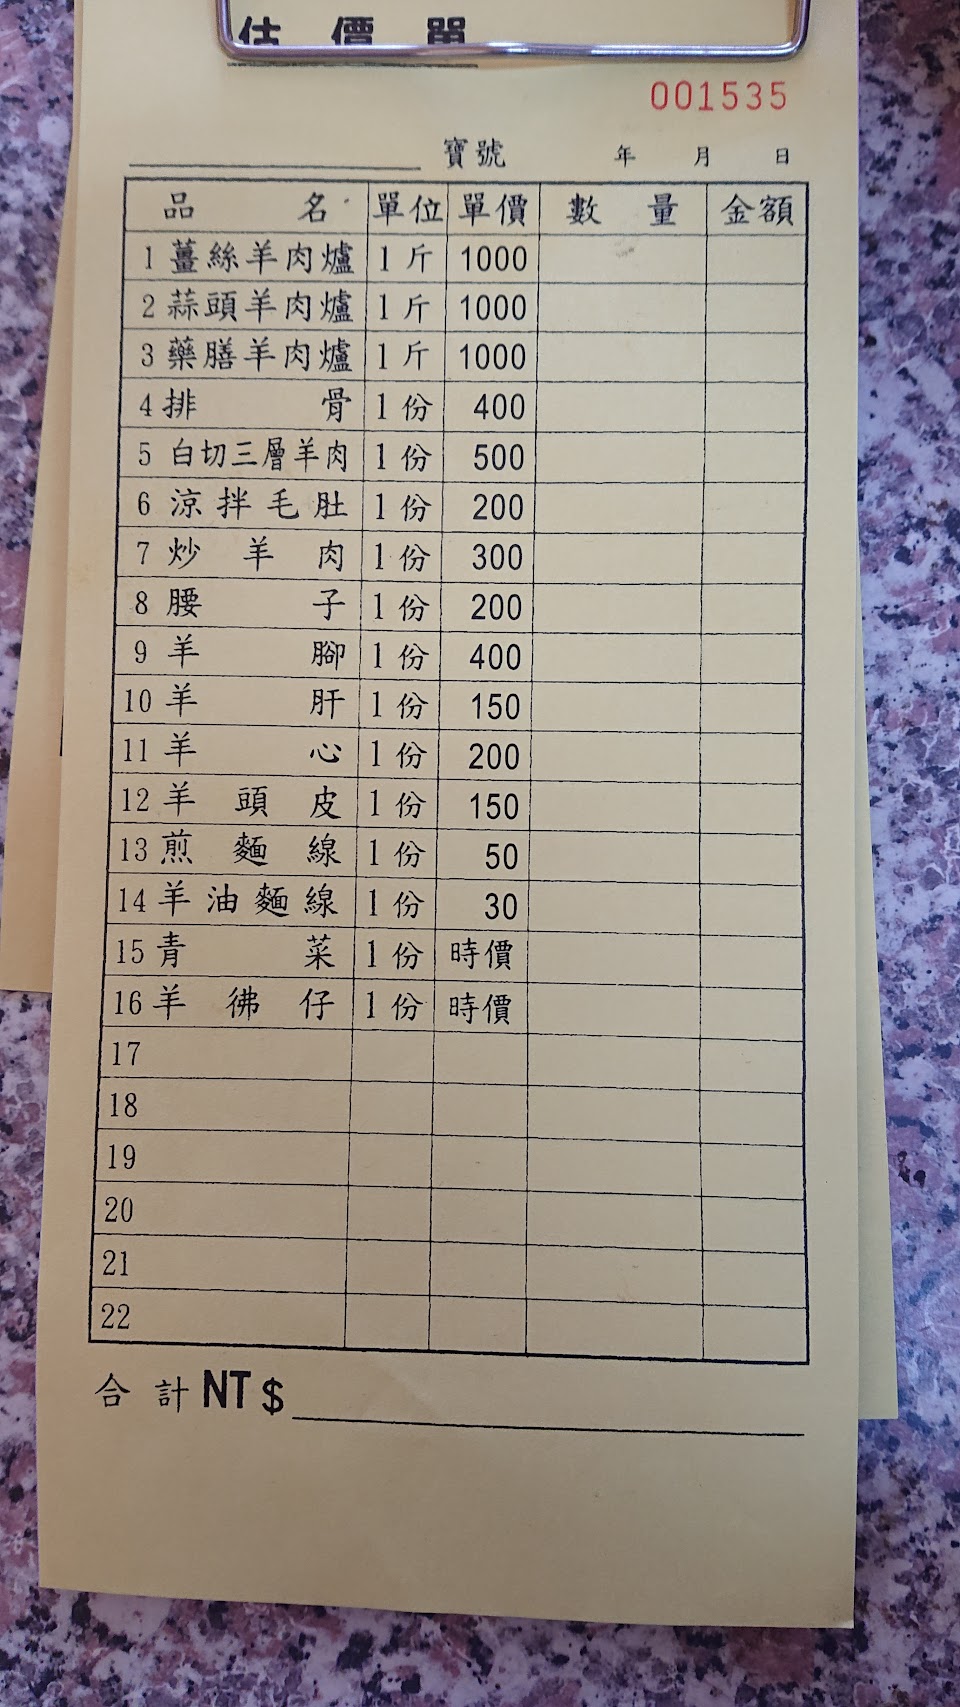 估價單
001535
寶號 年 月 日
品名 單位 單價 數量 金額
1 薑絲羊肉爐 1斤 1000
2 蒜頭羊肉爐 1斤 1000
3 藥膳羊肉爐 1斤 1000
4 排骨 1份 400
5 白切三層羊肉 1份 500
6 涼拌毛肚 1份 200
7 炒羊肉 1份 300
8 腰子 1份 200
9 羊腳 1份 400
10 羊肝 1份 150
11 羊心 1份 200
12 羊頭皮 1份 150
13 煎麵線 1份 50
14 羊油麵線 1份 30
15 青菜 1份 時價
16 羊彿仔 1份 時價
17
18
19
20
21
22
合計 NT $